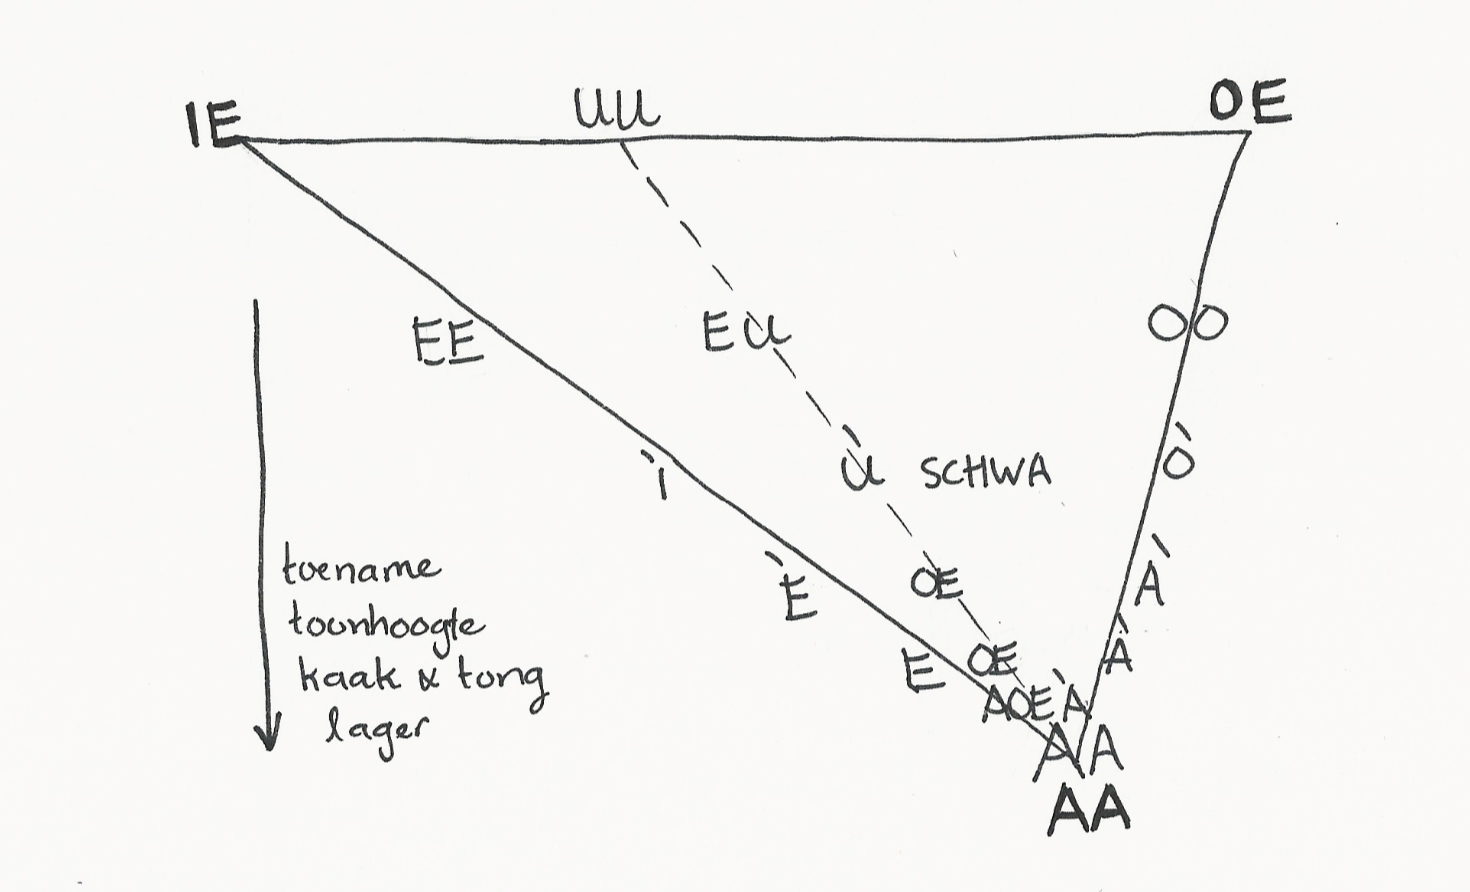 IE UU OE
EE EU OO
Ì Ù SCHWA Ò
È OE À
E OE À
A OE À
A A
AA
toename
toonhoogte
kaak & tong
lager